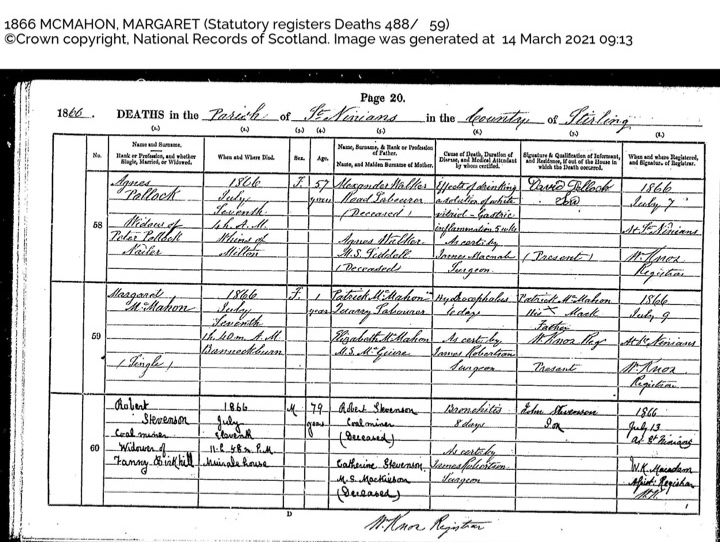 1866 MCMAHON, MARGARET (Statutory registers Deaths 488/ 59)
©Crown copyright, National Records of Scotland. Image was generated at 14 March 2021 09:13
Page 20.
1866. DEATHS in the Parish of St Ninians in the County of Stirling
(1.) (2.) (3.) (4.) (5.) (6.) (7.) (8.)
No.
Name and Surname.
Rank or Profession, and whether
Single, Married, or Widowed.
When and Where Died.
Sex.
Age.
Name, Surname, & Rank or Profession
of Father.
Name, and Maiden Surname of Mother.
Cause of Death, Duration of
Disease, and Medical Attendant
by whom certified.
Signature & Qualification of Informant,
and Residence, if out of the House in
which the Death occurred.
When and where Registered,
and Signature of Registrar.
58
Agnes
Pollock
Widow of
Peter Pollock
Nailer
1866
July
Seventh
4h. A.M.
Whins of
Milton
F.
57
years
Alexander Walker
Road Labourer
(Deceased)
Agnes Walker
M.S. Liddell
(Deceased)
Effects of drinking
a solution of white
vitriol - Gastric
inflammation 5 wks
As cert by
James Macnab
Surgeon
David Pollock
Son
(Present)
1866
July 7
At St Ninians
Wm Knox
Registrar
59
Margaret
McMahon
(Single)
1866
July
Seventh
1h. 40m. A.M.
Bannockburn
F.
1
year
Patrick McMahon
Quarry Labourer
Elizabeth McMahon
M.S. McGuire
Hydrocephalus
10 days
As cert by
James Robertson
Surgeon
Patrick McMahon
His X Mark
Father
Wm Knox Reg
Present
1866
July 9
At St Ninians
Wm Knox
Registrar
60
Robert
Stevenson
Coal miner
Widower of
Fanny
1866
July
Eleventh
11 h. 48 m. P.M.
Muiralehouse
M
79
years
Robert Stevenson
Coal miner
(Deceased)
Catherine Stevenson
M.S. Mackieson
(Deceased)
Bronchitis
8 days
As cert by
James Robertson
Surgeon
John Stevenson
Son
1866
July 13
at St Ninians
W.K. Macadam
Assist. Registrar
D
Wm Knox Registrar